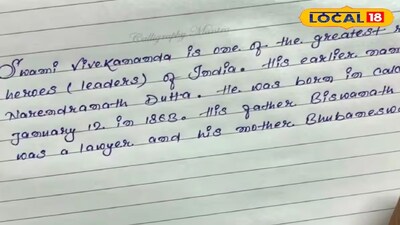 LOCAL 18
Calligraphy Master
Swami Vivekananda is one of the greatest
heroes (leaders) of India. His earlier nam
Narendranath Dutta. He was born in Calc
January 12 in 1863. His father Biswanath
was a lawyer and his mother Bhubanesw